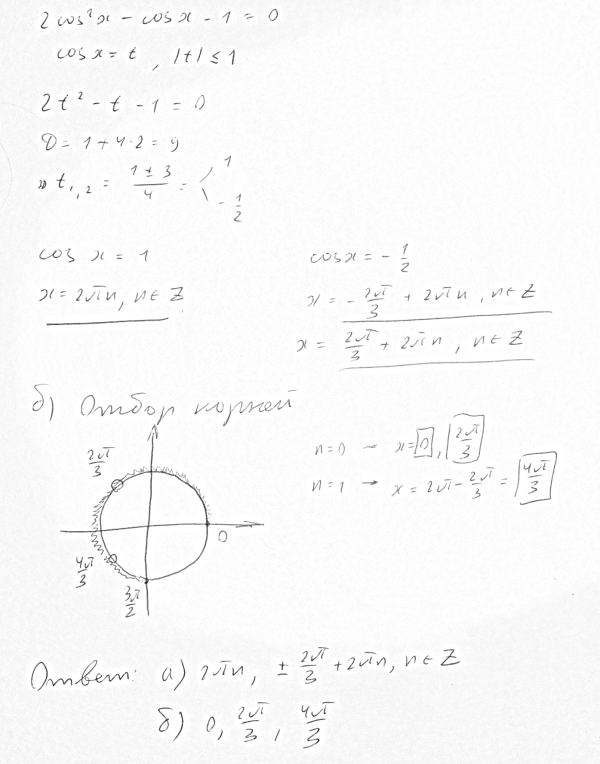 2cos²x - cosx - 1 = 0
cosx = t, |t| ≤ 1
2t² - t - 1 = 0
D = 1 + 4·2 = 9
t₁,₂ = (1 ± 3)/4 = 1
-1/2
cos x = 1
x = 2πn, n ∈ Z
cosx = -1/2
x = -2π/3 + 2πn, n ∈ Z
x = 2π/3 + 2πn, n ∈ Z
б) Отбор корней
2π/3
0
4π/3
3π/2
n=0 → x=0, 2π/3
n=1 → x = 2π - 2π/3 = 4π/3
Ответ: а) 2πn, ± 2π/3 + 2πn, n ∈ Z
б) 0, 2π/3, 4π/3